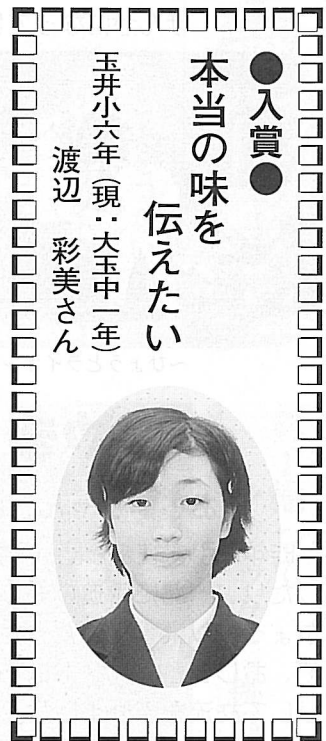 ●入賞●
本当の味を
伝えたい
玉井小六年（現：大玉中一年）
渡辺　彩美さん